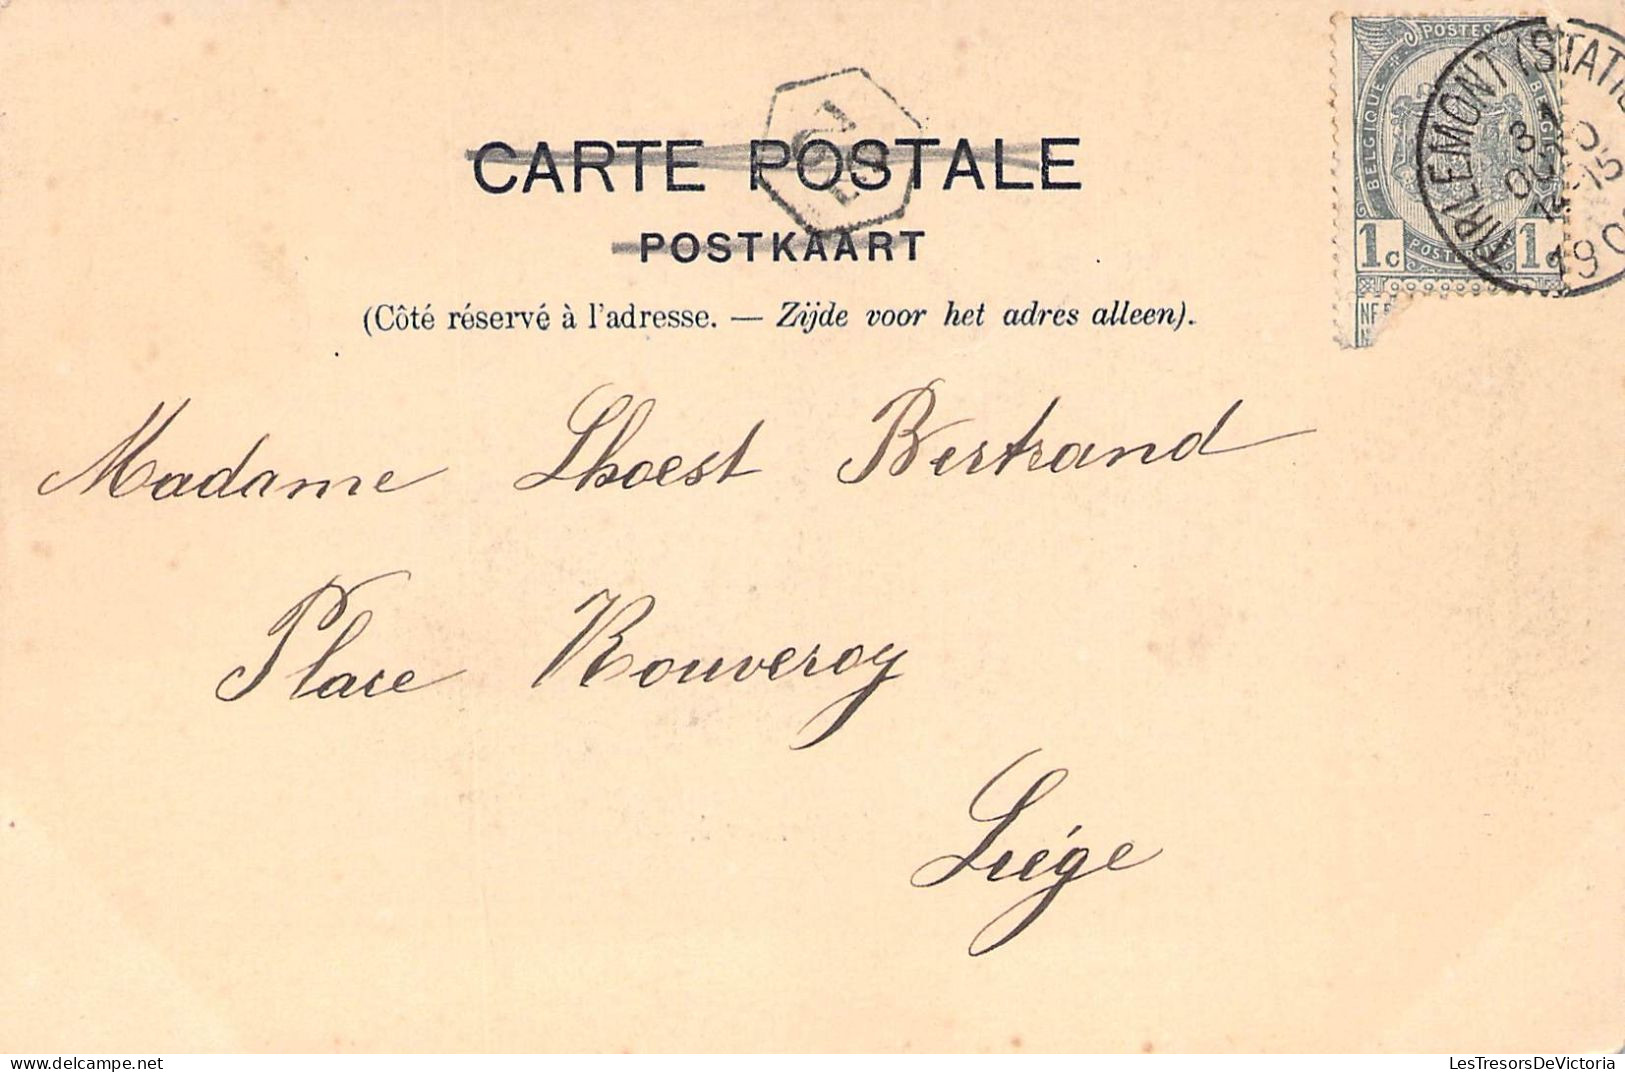 CARTE POSTALE
POSTKAART
(Côté réservé à l'adresse. — Zijde voor het adres alleen).
POSTES
BELGIQUE
1c 1c
TIRLEMONT (STATI
Madame Lhoest Bertrand
Place Rouveroy
Liége
LesTresorsDeVictoria